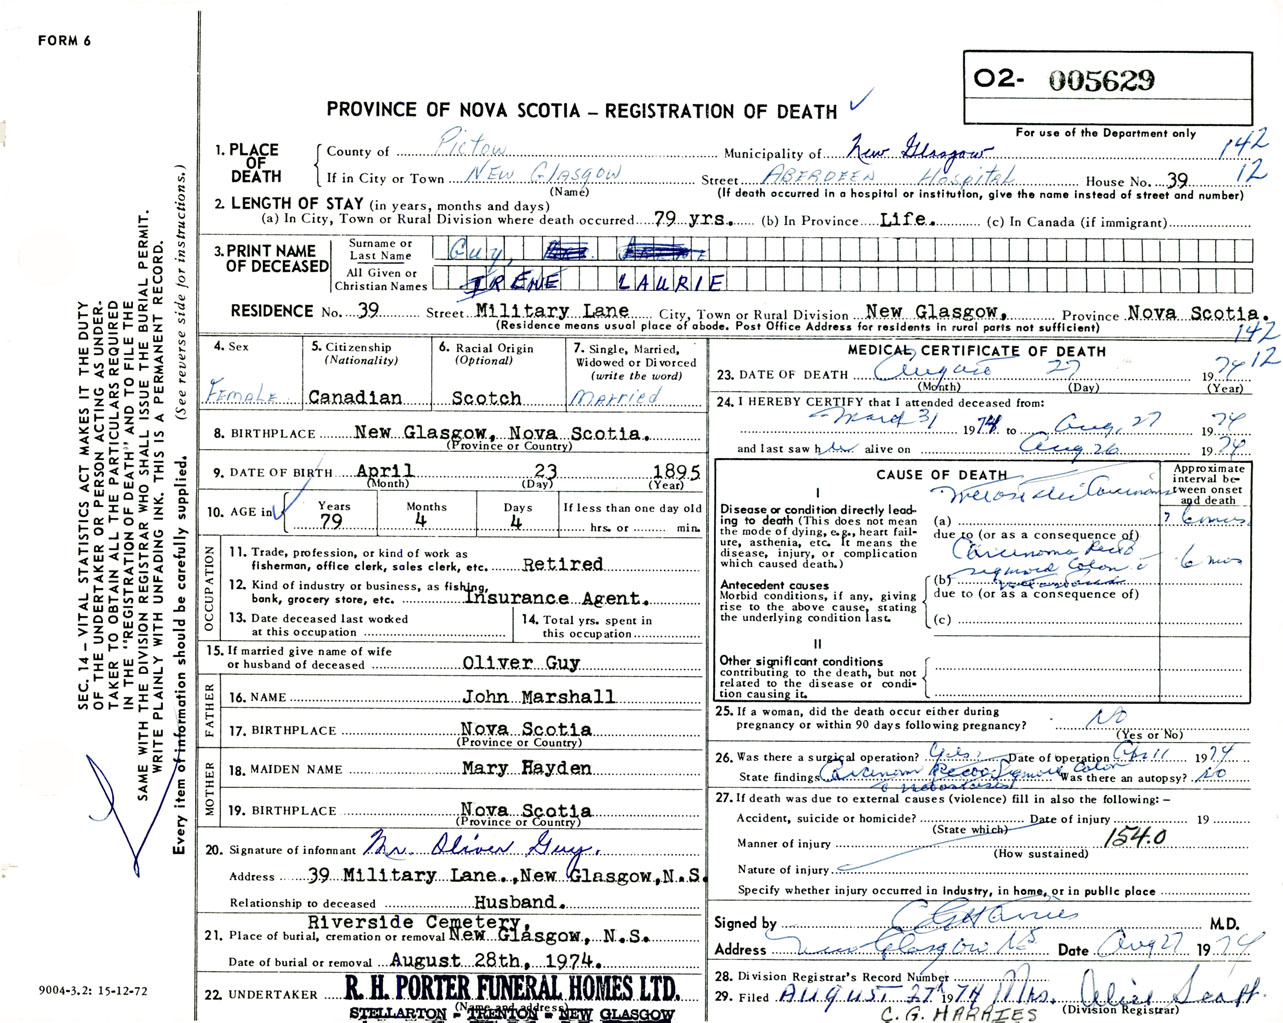 FORM 6
O2- 005629
PROVINCE OF NOVA SCOTIA – REGISTRATION OF DEATH ✓
For use of the Department only
142
12
1. PLACE OF DEATH
County of Pictou Municipality of New Glasgow
If in City or Town NEW GLASGOW Street ABERDEEN Hospital House No. 39
(Name) (If death occurred in a hospital or institution, give the name instead of street and number)
2. LENGTH OF STAY (in years, months and days)
(a) In City, Town or Rural Division where death occurred 79 yrs. (b) In Province Life. (c) In Canada (if immigrant)
3. PRINT NAME OF DECEASED
Surname or Last Name Guy,
All Given or Christian Names IRENE LAURIE
RESIDENCE No. 39 Street Military Lane City, Town or Rural Division New Glasgow, Province Nova Scotia.
(Residence means usual place of abode. Post Office Address for residents in rural parts not sufficient)
142
12
4. Sex FEMALE
5. Citizenship (Nationality) Canadian
6. Racial Origin (Optional) Scotch
7. Single, Married, Widowed or Divorced (write the word) MARRIED
8. BIRTHPLACE New Glasgow, Nova Scotia.
(Province or Country)
9. DATE OF BIRTH April 23 1895
(Month) (Day) (Year)
10. AGE in ✓ Years 79 Months 4 Days 4 If less than one day old hrs. or min.
OCCUPATION
11. Trade, profession, or kind of work as fisherman, office clerk, sales clerk, etc. Retired
12. Kind of industry or business, as fishing, bank, grocery store, etc. Insurance Agent.
13. Date deceased last worked at this occupation
14. Total yrs. spent in this occupation
15. If married give name of wife or husband of deceased Oliver Guy
FATHER
16. NAME John Marshall
17. BIRTHPLACE Nova Scotia
(Province or Country)
MOTHER
18. MAIDEN NAME Mary Hayden
19. BIRTHPLACE Nova Scotia
(Province or Country)
20. Signature of informant Mr. Oliver Guy.
Address 39 Military Lane., New Glasgow, N.S.
Relationship to deceased Husband.
21. Place of burial, cremation or removal Riverside Cemetery, New Glasgow, N.S.
Date of burial or removal August 28th, 1974.
22. UNDERTAKER R. H. PORTER FUNERAL HOMES LTD.
(Name and address)
STELLARTON – TRENTON – NEW GLASGOW
MEDICAL CERTIFICATE OF DEATH
23. DATE OF DEATH August 27 1974
(Month) (Day) (Year)
24. I HEREBY CERTIFY that I attended deceased from:
March 31 1974 to Aug. 27 1974
and last saw her alive on Aug 26 1974
CAUSE OF DEATH
Approximate interval between onset and death
I
Disease or condition directly leading to death (This does not mean the mode of dying, e.g., heart failure, asthenia, etc. It means the disease, injury, or complication which caused death.)
(a) Carcinoma 6 mos
due to (or as a consequence of)
Antecedent causes
Morbid conditions, if any, giving rise to the above cause, stating the underlying condition last.
(b) Carcinoma Recto sigmoid Colon 6 mos
due to (or as a consequence of)
(c)
II
Other significant conditions contributing to the death, but not related to the disease or condition causing it.
25. If a woman, did the death occur either during pregnancy or within 90 days following pregnancy? No
(Yes or No)
26. Was there a surgical operation? Yes Date of operation Apr 11 1974
State findings Carcinoma Recto Sigmoid Colon Was there an autopsy? No
c metastases
27. If death was due to external causes (violence) fill in also the following: –
Accident, suicide or homicide? Date of injury 19
(State which)
Manner of injury 154.0
(How sustained)
Nature of injury
Specify whether injury occurred in industry, in home, or in public place
Signed by CG Harries M.D.
Address New Glasgow NS Date Aug 27 1974
28. Division Registrar's Record Number
29. Filed AUGUST 27th 1974 Mrs. Alice
(Division Registrar)
C. G. HARRIES
SEC. 14 – VITAL STATISTICS ACT MAKES IT THE DUTY
OF THE UNDERTAKER OR PERSON ACTING AS UNDER-
TAKER TO OBTAIN ALL THE PARTICULARS REQUIRED
IN THE "REGISTRATION OF DEATH" AND TO FILE THE
SAME WITH THE DIVISION REGISTRAR WHO SHALL ISSUE THE BURIAL PERMIT.
WRITE PLAINLY WITH UNFADING INK. THIS IS A PERMANENT RECORD.
Every item of information should be carefully supplied. (See reverse side for instructions.)
9004-3.2: 15-12-72